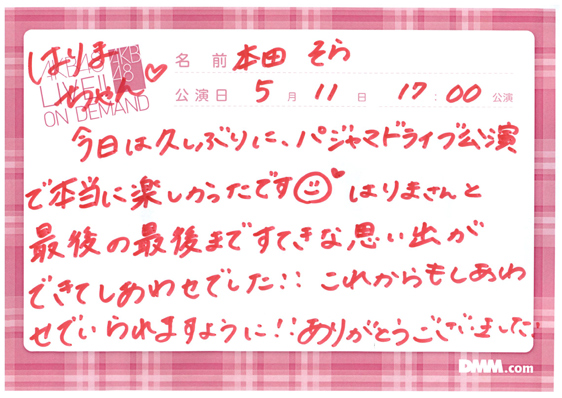 はりまちゃん♡
AKB48 AKB48
LIVE!!
ON DEMAND
名 前 本田 そら
公演日 5 月 11 日 17:00 公演
今日は久しぶりに、パジャマドライブ公演
で本当に楽しかったです☺♥ はりまさんと
最後の最後まですてきな思い出が
できてしあわせでした!! これからもしあわ
せでいられますように!! ありがとうございました!
DMM.com